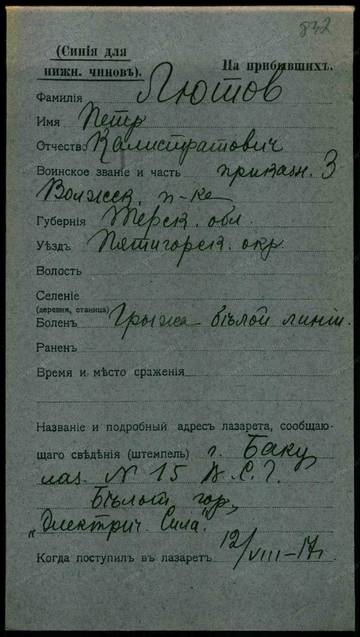 832
(Синія для
нижн. чиновъ).
На прибывшихъ.
Фамилія Лютов
Имя Петр
Отчество Калистратович
Воинское званіе и часть приказн. 3
Волжск. п-ка
Губернія Терск. обл.
Уѣздъ Пятигорск. окр.
Волость
Селеніе
(деревня, станица)
Боленъ Грыжа бѣлой линіи.
Раненъ
Время и мѣсто сраженія
Названіе и подробный адресъ лазарета, сообщаю-
щаго свѣдѣнія (штемпель) г. Баку
лаз. N 15 В. С. Г.
Бѣлой гор.
„Электрич. Сила".
Когда поступил въ лазаретъ 12/VIII–17г.